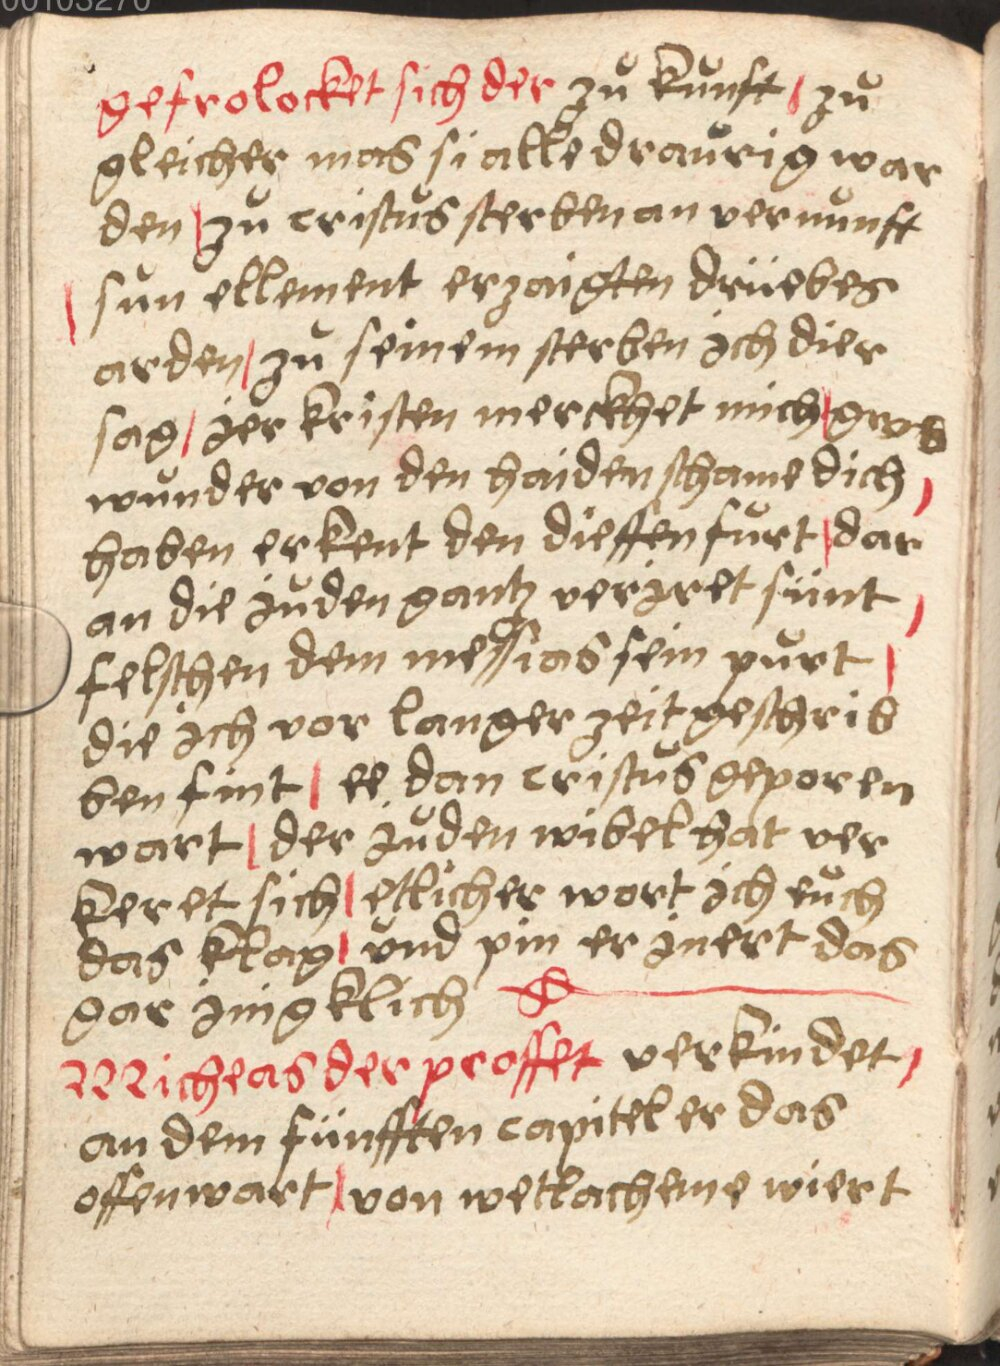 00103270
gefrolocket sich der zů kůnft / zů
gleicher mas si alle draůrig war
den / zů cristůs sterben an vernůnft
/ sun ellement erzaigten drüebes
arden / zů seinem sterben ich dier
sag / ier kristen merckhet mich / gros
wunder von den haiden schame dich /
haben erkent den dieffen fůrt / dar
an die juden gantz veriret sünt /
felschen dem messias sein půrt /
die ich vor langer zeit geschrib
ben fint / ee dan cristůs geporen
wart / der jůden wibel hat ver
keret sich / etlicher wort ich eůch
das klag / vnd pin er inert das
gar inigklich
Micheas der proffet verkindet /
an dem fünfften capitel er das
offenwart / von wetlacheme wiert